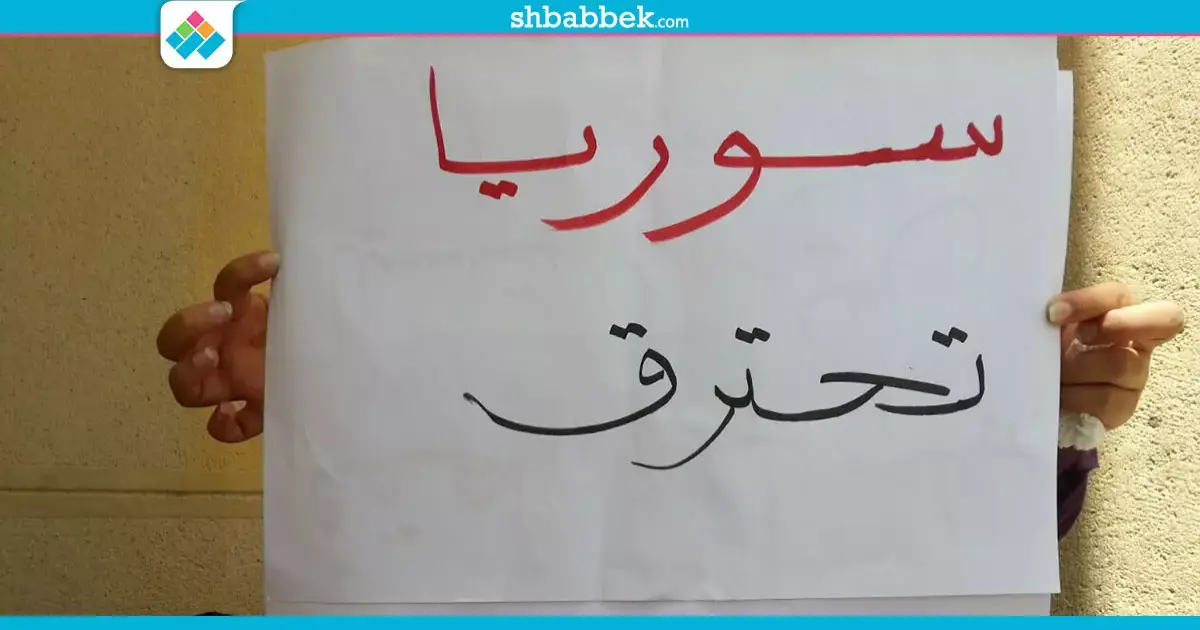 shbabbek.com
سوريا
تحترق